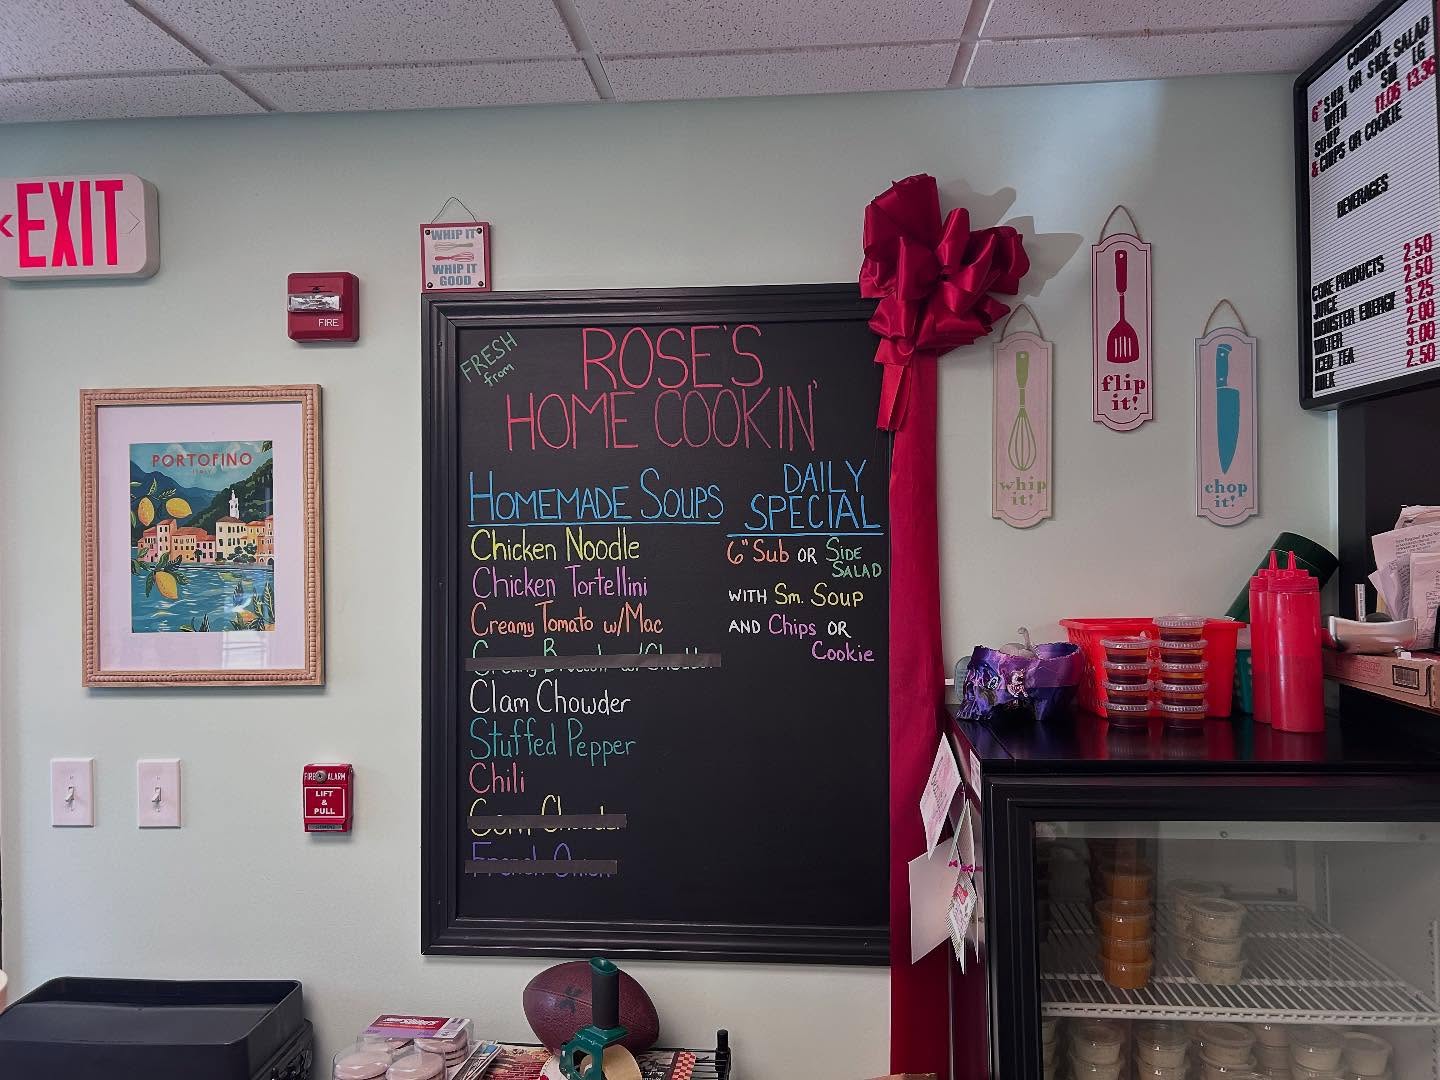 EXIT
FIRE
WHIP IT
WHIP IT
GOOD
PORTOFINO
ITALY
FIRE ALARM
LIFT
&
PULL
FRESH
from
ROSE'S
HOME COOKIN'
HOMEMADE SOUPS
Chicken Noodle
Chicken Tortellini
Creamy Tomato w/Mac
Creamy Broccoli w/Cheddar
Clam Chowder
Stuffed Pepper
Chili
Corn Chowder
French Onion
DAILY
SPECIAL
6" Sub OR SIDE
SALAD
WITH Sm. SOUP
AND Chips OR
Cookie
whip
it!
flip
it!
chop
it!
COMBO
6" SUB OR SIDE SALAD
SM LG
WITH 11.06 13.36
SOUP
& CHIPS OR COOKIE
BEVERAGES
2.50
CORE PRODUCTS 2.50
JUICE 3.25
MONSTER ENERGY 2.00
WATER 3.00
ICED TEA 2.50
MILK